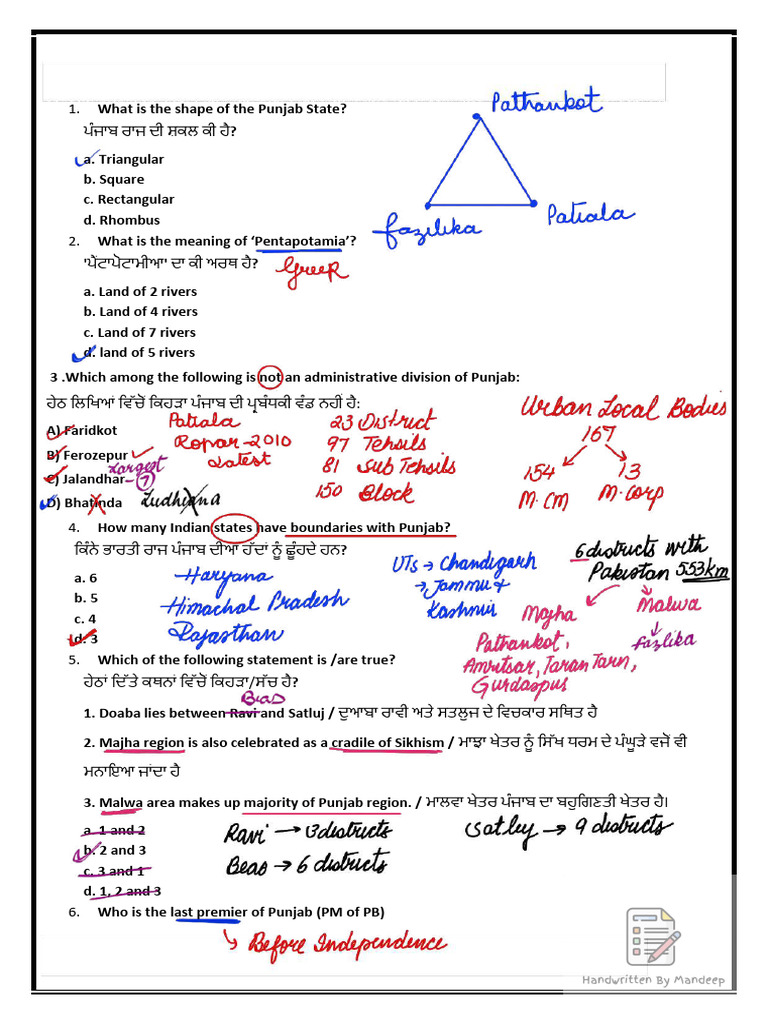 1. What is the shape of the Punjab State?
Pathankot
ਪੰਜਾਬ ਰਾਜ ਦੀ ਸ਼ਕਲ ਕੀ ਹੈ?
a. Triangular
b. Square
c. Rectangular
d. Rhombus
Fazilika
Patiala
2. What is the meaning of ‘Pentapotamia’?
'ਪੈਂਟਾਪੋਟਾਮੀਆ' ਦਾ ਕੀ ਅਰਥ ਹੈ?
Greek
a. Land of 2 rivers
b. Land of 4 rivers
c. Land of 7 rivers
d. land of 5 rivers
3 .Which among the following is not an administrative division of Punjab:
ਹੇਠ ਲਿਖਿਆਂ ਵਿੱਚੋਂ ਕਿਹੜਾ ਪੰਜਾਬ ਦੀ ਪ੍ਰਬੰਧਕੀ ਵੰਡ ਨਹੀ ਹੈ:
A) Faridkot
B) Ferozepur
C) Jalandhar
D) Bhatinda
Patiala
Ropar-2010
Latest
Largest
7
Ludhiana
23 District
97 Tehsils
81 Sub Tehsils
150 Block
Urban Local Bodies
167
154
13
M.CM
M.Corp
4. How many Indian states have boundaries with Punjab?
ਕਿੰਨੇ ਭਾਰਤੀ ਰਾਜ ਪੰਜਾਬ ਦੀਆ ਹੱਦਾਂ ਨੂੰ ਛੂੰਹਦੇ ਹਨ?
a. 6
b. 5
c. 4
d. 3
Haryana
Himachal Pradesh
Rajasthan
UTs → Chandigarh
→ Jammu &
Kashmir
6 districts with
Pakistan 553km
Majha
Malwa
Pathankot,
Amritsar, Taran Tarn,
Gurdaspus
fazlika
5. Which of the following statement is /are true?
ਹੇਠਾਂ ਦਿੱਤੇ ਕਥਨਾਂ ਵਿੱਚੋਂ ਕਿਹੜਾ/ਸੱਚ ਹੈ?
Beas
1. Doaba lies between Ravi and Satluj / ਦੁਆਬਾ ਰਾਵੀ ਅਤੇ ਸਤਲੁਜ ਦੇ ਵਿਚਕਾਰ ਸਥਿਤ ਹੈ
2. Majha region is also celebrated as a cradile of Sikhism / ਮਾਝਾ ਖੇਤਰ ਨੂੰ ਸਿੱਖ ਧਰਮ ਦੇ ਪੰਘੂੜੇ ਵਜੋਂ ਵੀ
ਮਨਾਇਆ ਜਾਂਦਾ ਹੈ
3. Malwa area makes up majority of Punjab region. / ਮਾਲਵਾ ਖੇਤਰ ਪੰਜਾਬ ਦਾ ਬਹੁਗਿਣਤੀ ਖੇਤਰ ਹੈ।
a. 1 and 2
b. 2 and 3
c. 3 and 1
d. 1, 2 and 3
Ravi → 3 districts
Beas → 6 districts
Satley → 9 districts
6. Who is the last premier of Punjab (PM of PB)
Before Independence
Handwritten By Mandeep